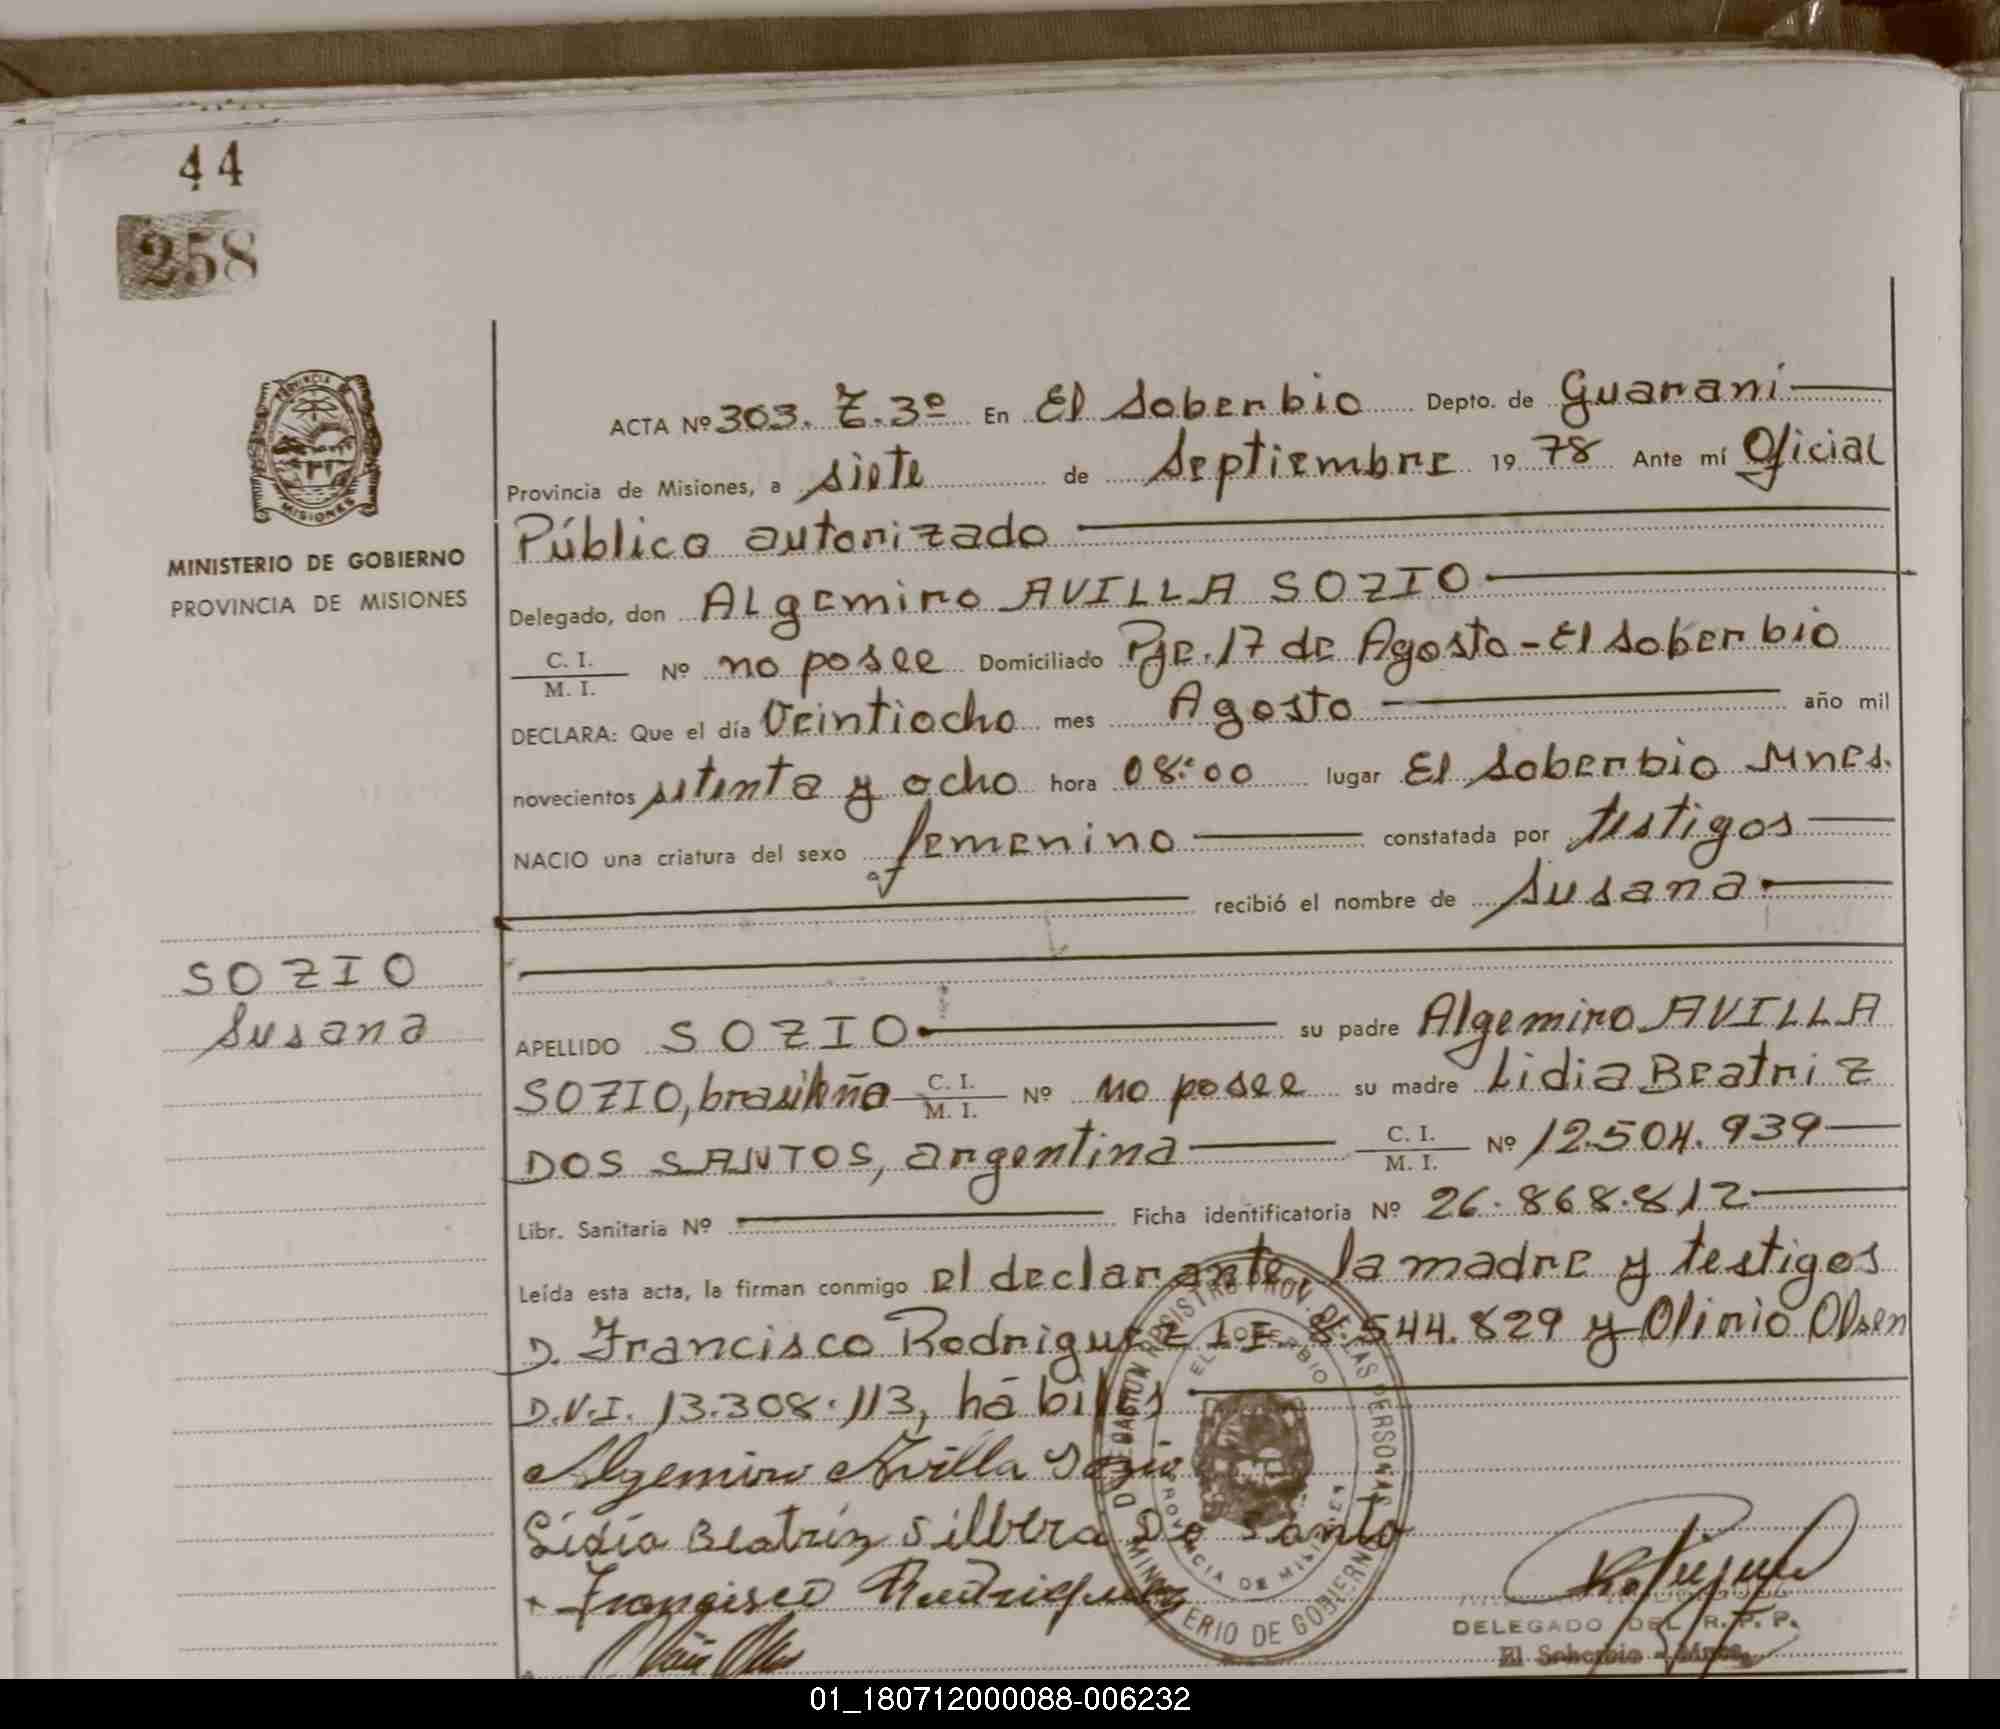 44
258
PROVINCIA DE
MISIONES
MINISTERIO DE GOBIERNO
PROVINCIA DE MISIONES
ACTA Nº 303. T.3º En El Soberbio Depto. de Guaraní
Provincia de Misiones, a siete de Septiembre 19 78 Ante mí Oficial
Público autorizado
Delegado, don Algemiro AVILLA SOZIO
C. I.
M. I. Nº no posee Domiciliado Pje. 17 de Agosto - El Soberbio
DECLARA: Que el día Veintiocho mes Agosto año mil
novecientos setenta y ocho hora 08:00 lugar El Soberbio Mnes.
NACIO una criatura del sexo femenino constatada por testigos
recibió el nombre de Susana
SOZIO
Susana
APELLIDO SOZIO su padre Algemiro AVILLA
SOZIO, brasileño C. I. M. I. Nº no posee su madre Lidia Beatriz
DOS SANTOS, argentina C. I. M. I. Nº 12.504.939
Libr. Sanitaria Nº Ficha identificatoria Nº 26.868.812
Leída esta acta, la firman conmigo el declarante, la madre y testigos
D. Francisco Rodriguez L.E. 8.544.829 y Olirio Olsen
D.N.I. 13.308.113, hábiles
Algemiro Avilla Sozio
Lidia Beatriz Silbera Do Santo
Francisco Rudriguez
DELEGACION REGISTRO PROV. DE LAS PERSONAS
EL SOBERBIO
PROVINCIA DE MISIONES
MINISTERIO DE GOBIERNO
DELEGADO DEL R. P. P.
El Soberbio - Mnes.
01_180712000088-006232